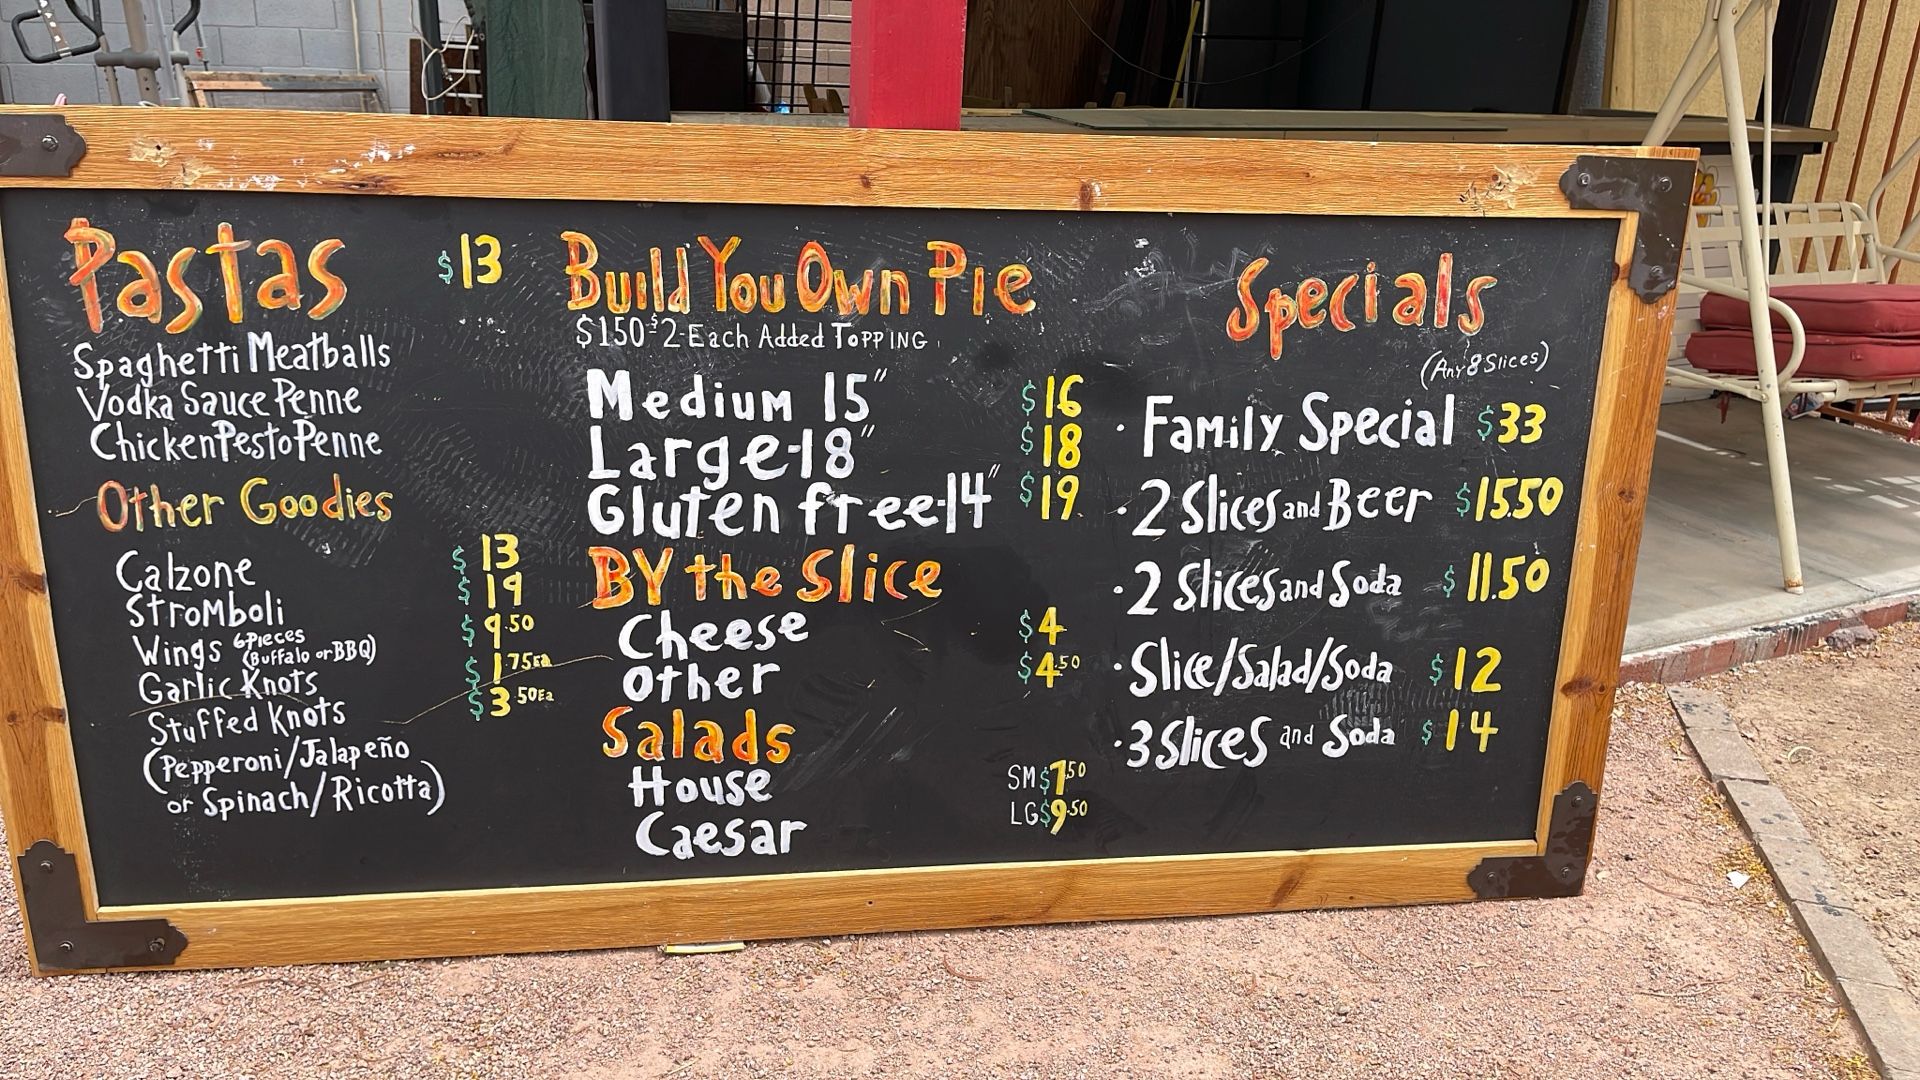 Pastas $13
Spaghetti Meatballs
Vodka Sauce Penne
Chicken Pesto Penne
Other Goodies
Calzone $13
Stromboli $19
Wings 6 Pieces (Buffalo or BBQ) $9.50
Garlic Knots $1.75 Ea
Stuffed Knots $3.50 Ea
(Pepperoni/Jalapeño
or Spinach/Ricotta)
Build You Own Pie
$150-$2-Each Added Topping
Medium 15" $16
Large-18" $18
Gluten free-14" $19
By the Slice
Cheese $4
Other $4.50
Salads
House SM $7.50
Caesar LG $9.50
Specials
(Any 8 Slices)
· Family Special $33
· 2 Slices and Beer $15.50
· 2 Slices and Soda $11.50
· Slice/Salad/Soda $12
· 3 Slices and Soda $14